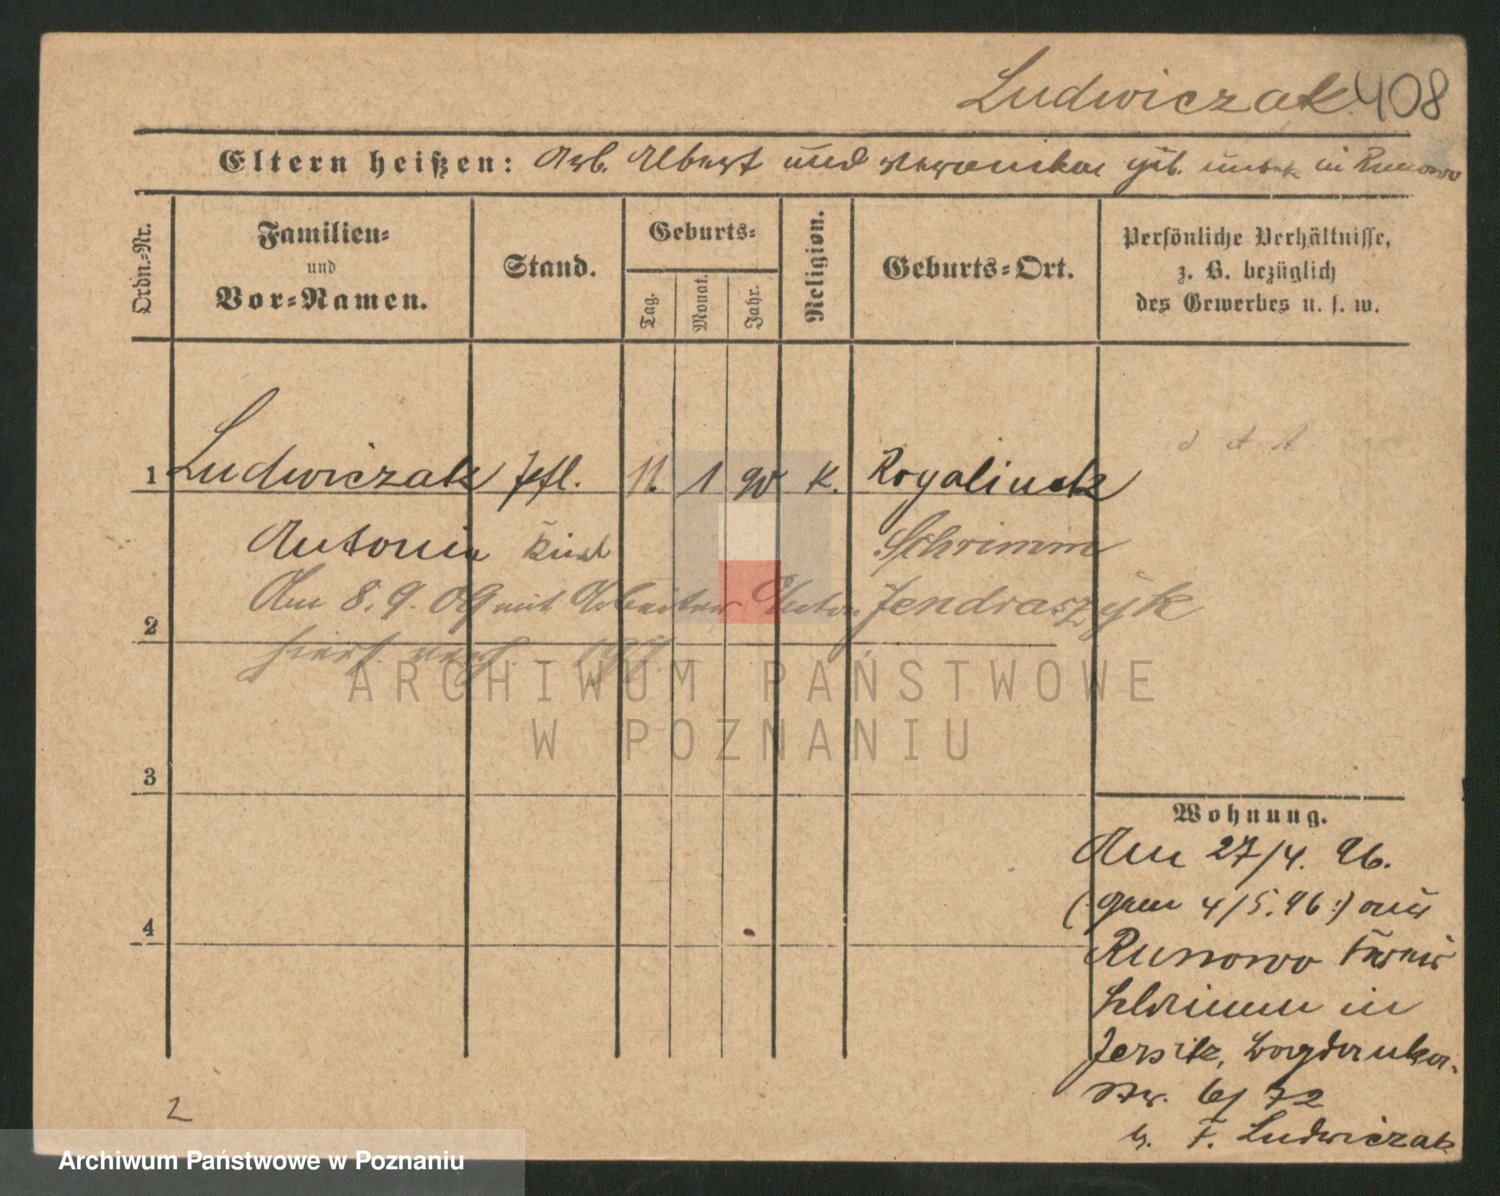 Ludwiczak. 408
Eltern heißen: Arb. Albert und Veronika geb. in Runowo
Ordn.-Nr.
Familien-
und
Vor-Namen.
Stand.
Geburts-
Tag.
Monat.
Jahr.
Religion.
Geburts-Ort.
Persönliche Verhältnisse,
z. B. bezüglich
des Gewerbes u. s. w.
1 Ludwiczak 11. 1 90 K. Rogalinek
Antonie Kind Schrimm
Am 8. 9. 09 mit Arbeiter Anton Jendraszyk
2
ARCHIWUM PAŃSTWOWE
W POZNANIU
3
Wohnung.
Am 27/4. 96.
(: gem 4/5. 96 :) aus
4
Runowo Kreis
Schrimm in
Jersitz, Bogdanka-
str. 72
b. F. Ludwiczak
2
Archiwum Państwowe w Poznaniu